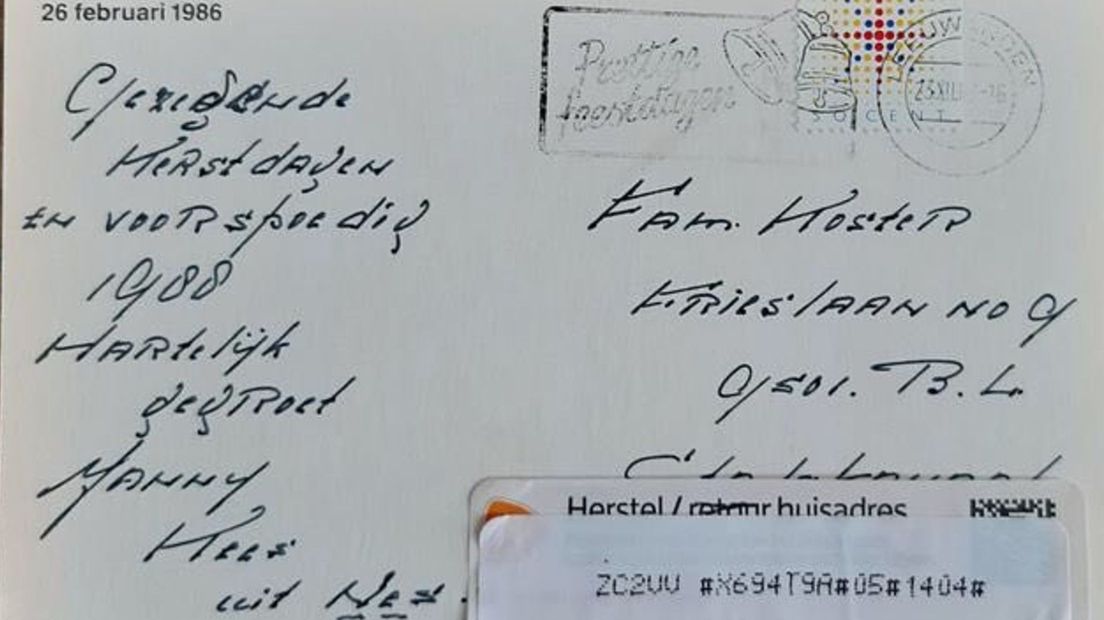 26 februari 1986
Gezegende
Kerstdagen
en voorspoedig
1988
Hartelijk
gegroet
Manny
Kees
uit Nes.
Prettige
feestdagen
LEEUWARDEN
CENT
Fam. Koster
Frieslaan no 9
9501. B.L.
Herstel / retour huisadres
ZC2UU #X694T9A#05#1404#